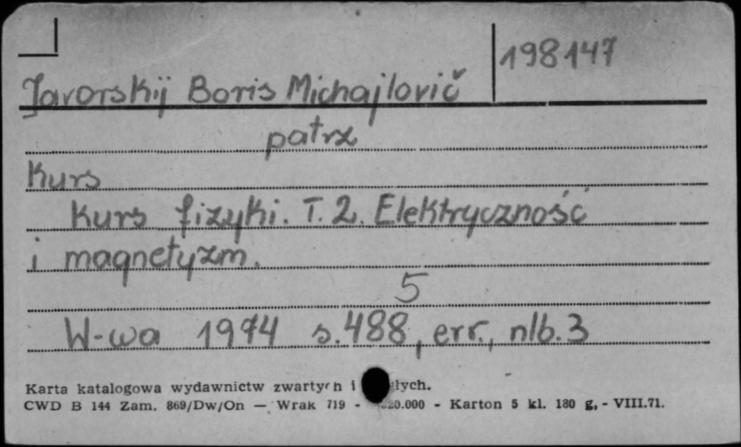 198147
Javorskij Boris Michajlovič
patrz
Kurs
Kurs fizyki. T. 2. Elektryczność
i magnetyzm.
5
W-wa 1974 s. 488, err., nlb. 3
Karta katalogowa wydawnictw zwartych i
CWD B 144 Zam. 869/Dw/On — Wrak 719 - 20.000 - Karton 5 kl. 180 g, - VIII.71.